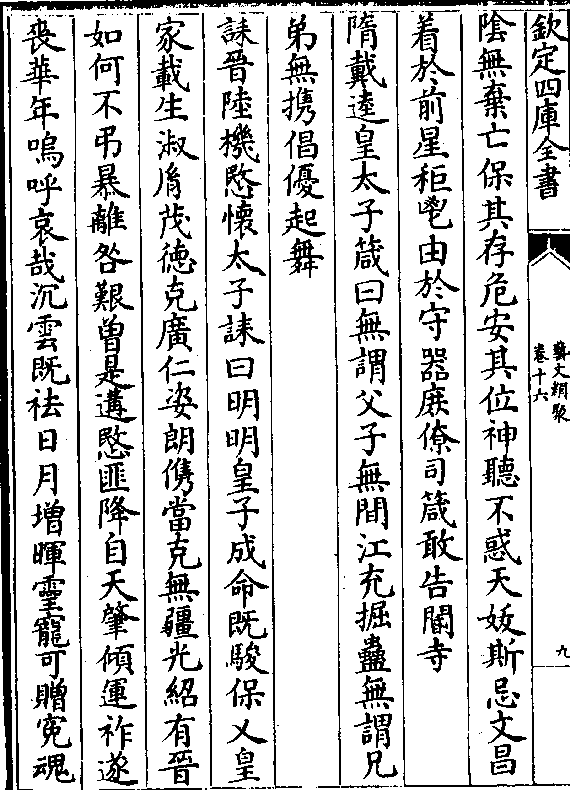 欽定四庫全書
藝文類聚
卷十六
九
陰無棄亡保其存危安其位神聽不惑天妖斯忌文昌
着於前星秬鬯由於守器庻僚司箴敢告閽寺
隋戴逵皇太子箴曰無謂父子無間江充掘蠱無謂兄
弟無携倡優起舞
誄晉陸機愍懷太子誄曰明明皇子成命既駿保乂皇
家載生淑胤茂徳克廣仁姿朗儁當克無疆光紹有晉
如何不弔暴離咎艱曽是遘愍匪降自天肇傾運祚遂
喪華年嗚呼哀哉沉雲既祛日月增暉靈寵可贈寃魂